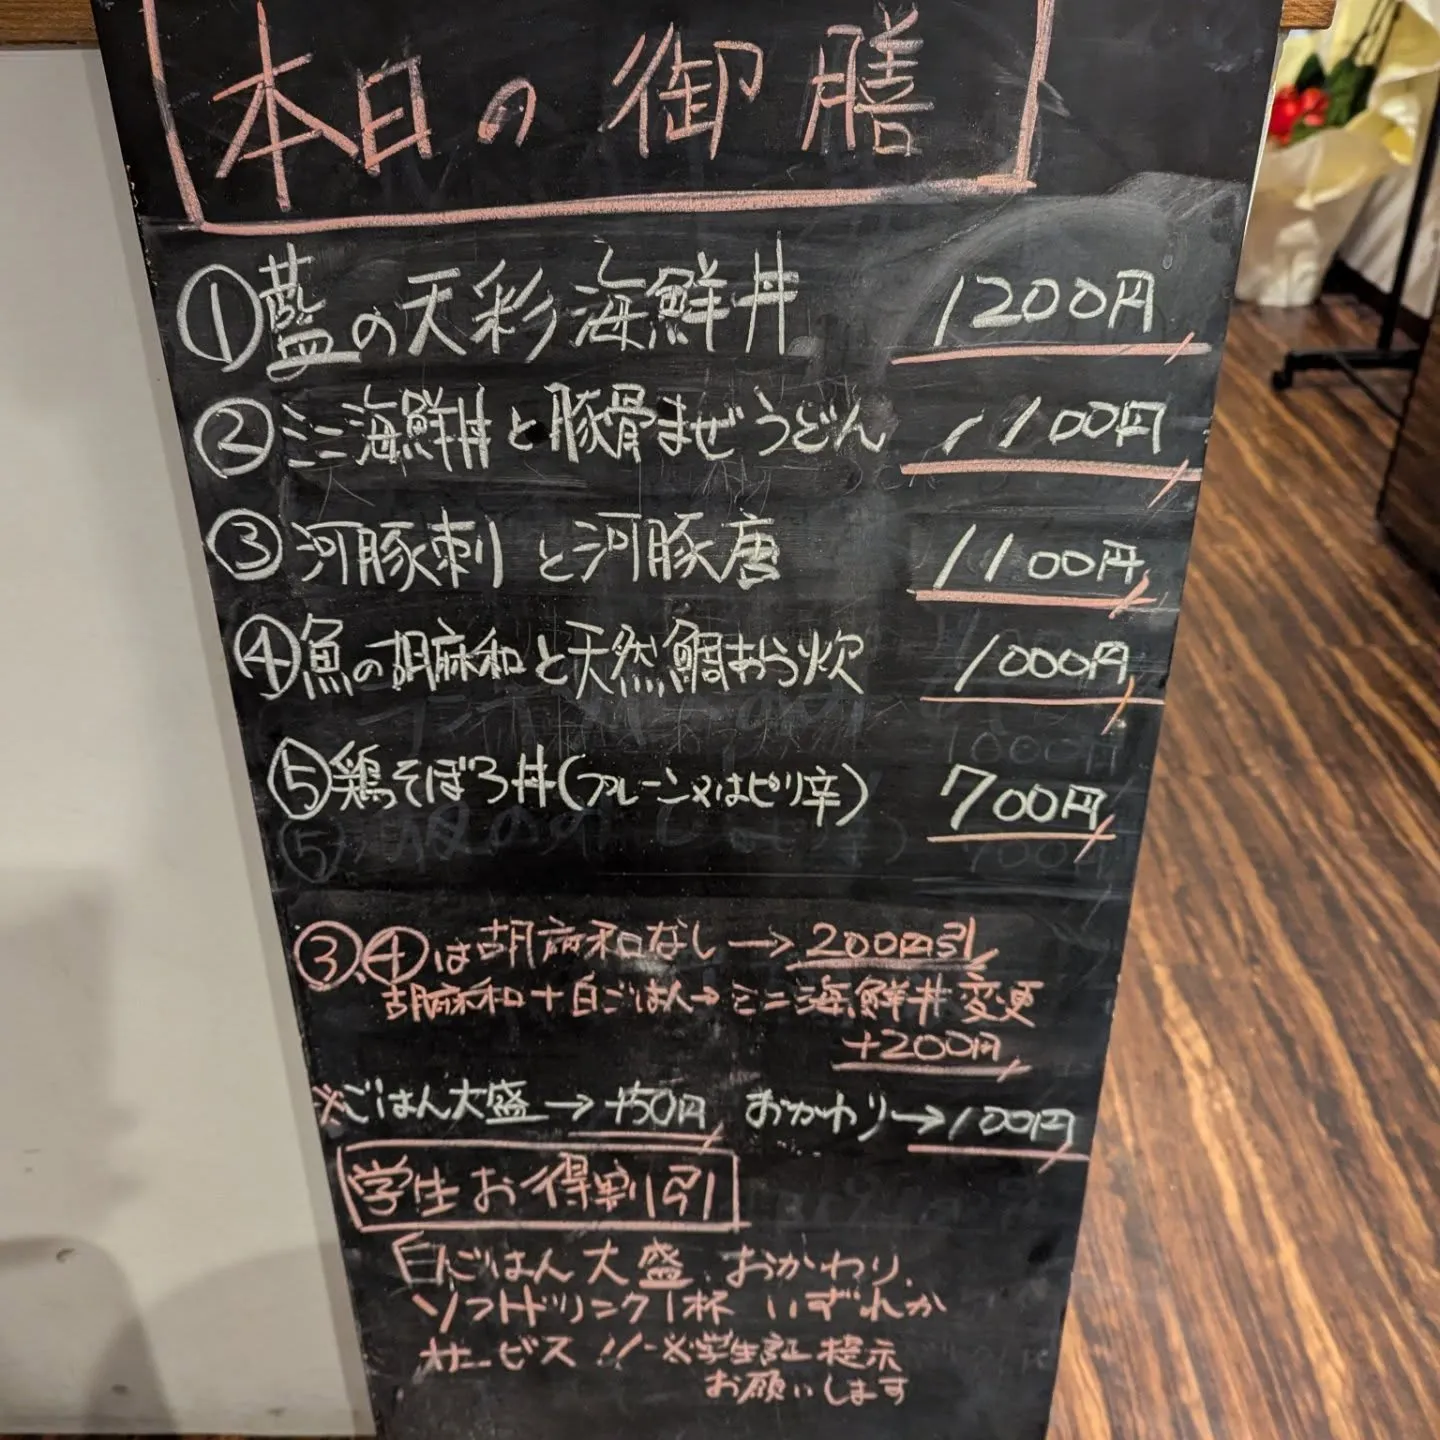 本日の御膳
①藍の天彩海鮮丼 1200円
②ミニ海鮮丼と豚骨まぜうどん 1100円
③河豚刺と河豚唐 1100円
④魚の胡麻和と天然鯛あら炊 1000円
⑤鶏そぼろ丼(プレーン又はピリ辛) 700円
③、④は胡麻和なし→200円引
胡麻和+白ごはん→ミニ海鮮丼変更
+200円
※ごはん大盛→+50円 おかわり→100円
学生お得割引
白ごはん大盛、おかわり、
ソフトドリンク1杯 いずれか
サービス!!※学生証提示
お願いします